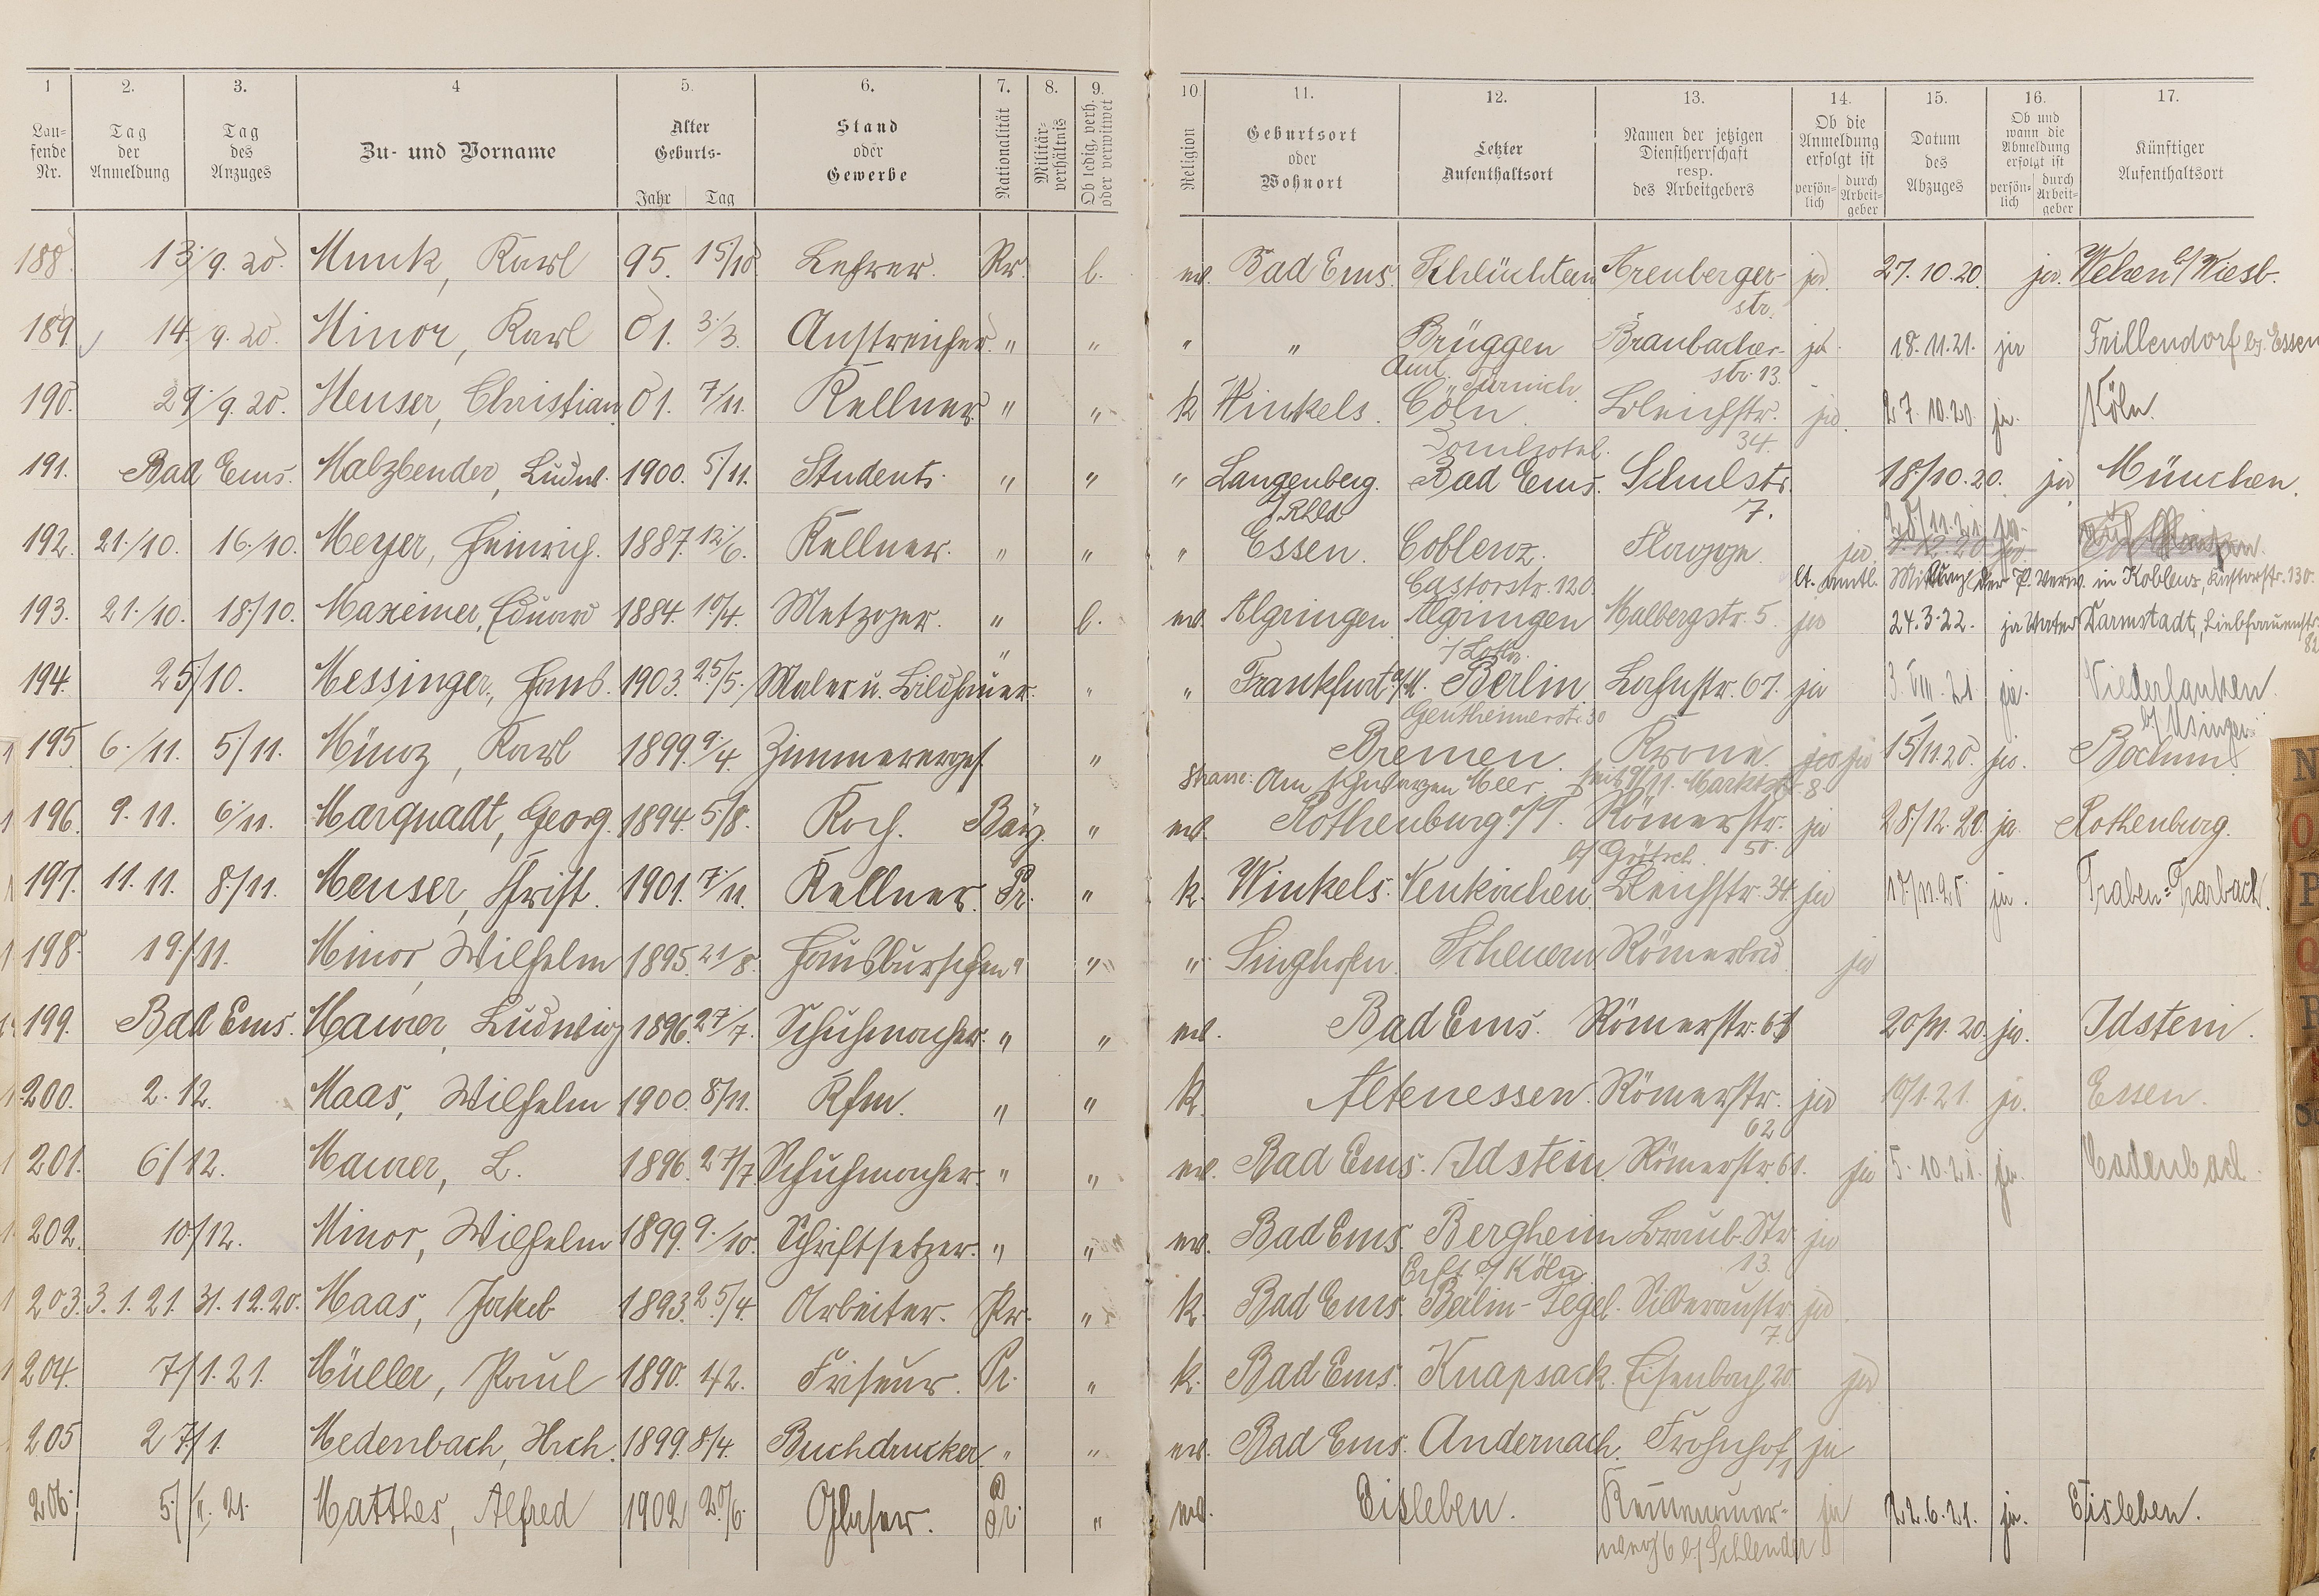 1 2. 3. 4 5. 6. 7. 8. 9. 10. 11. 12. 13. 14. 15. 16. 17.
Laufende Nr. Tag der Anmeldung Tag des Anzuges Zu- und Vorname Alter Geburts- Jahr Tag Stand oder Gewerbe Nationalität Militärverhältnis Ob ledig, verh. oder verwitwet Religion Geburtsort oder Wohnort Letzter Aufenthaltsort Namen der jetzigen Dienstherrschaft resp. des Arbeitgebers Ob die Anmeldung erfolgt ist persönlich durch Arbeitgeber Datum des Abzuges Ob und wann die Abmeldung erfolgt ist persönlich durch Arbeitgeber Künftiger Aufenthaltsort
188. 13./9. 20. Munk, Karl 95. 15/10 Lehrer. Pr. l. ev. Bad Ems. Schlüchtern Arenberger- ja. 27. 10. 20. ja. Wehen b/ Wiesb.
str.
189. 14. 9. 20. Minor, Karl 01. 3./3. Anstreicher. " " " " Brüggen Braubacher- ja. 18. 11. 21. ja Frillendorf bj. Essen
Amt. Türnich str. 13.
190. 29./9. 20. Meuser, Christian 01. 7/11. Kellner " " k Winkels. Cöln. Bleichstr. ja. 27. 10. 20. ja. Köln.
Domhotel. 34.
191. Bad Ems. Malzbender, Ludw. 1900. 5/11. Student. " " " Langenberg. Bad Ems. Schulstr. 18./10. 20. ja München.
/Rhld 7.
192. 21./10. 16./10. Meyer, Heinrich. 1887. 12/6. Kellner. " " " Essen. Coblenz. ja.
Castorstr. 120. lt. amtl. Mittlung der P. Verw. in Koblenz, Kastorstr. 130.
193. 21./10. 18./10. Maxeiner, Eduard 1884. 10/4. Metzger. " l. ev. Algringen Algringen Malbergstr. 5. ja 24. 3. 22. ja Darmstadt, Liebfrauenstr.
/Lothr. 82
194. 25./10. Messinger, Hans. 1903. 25./5. Maler u. Bildhauer. " " " Frankfurt a/M. Berlin Lahnstr. 67. ja 3. VIII. 21. ja.
Genthinerstr. 30 b/ Usingen
195. 6./11. 5/11. Münz, Karl 1899. 9/4. Zimmererges. " Bremen. Krone. ja 15/11. 20. ja. Bochum.
Strasse: Am schwarzen Meer. seit 9/11. Marktstr. 8.
196. 9. 11. 6/11. Marquadt, Georg. 1894. 5./8. Koch. Bay. " ev. Rothenburg o/T. Römerstr. ja 28/12. 20. ja. Rothenburg.
b/ 50.
197. 11. 11. 8./11. Meuser, Christ. 1901. 7/11. Kellner. Pr. " k. Winkels. Neukirchen. Bleichstr. 34. ja ja. Traben-Trarbach.
198. 19./11. Minor, Wilhelm 1895. 21/8. Hausburschen " " " Singhofen. Scheuern Römerbad ja
199. Bad Ems. Maurer, Ludwig 1896. 27/7. Schuhmacher. " " ev. Bad Ems. Römerstr. 61 20/11. 20. ja. Idstein.
200. 2. 12. Maas, Wilhelm 1900. 8/11. Kfm. " " k. Altenessen. Römerstr. ja 10/1. 21. ja. Essen.
62
201. 6/12. Maurer, L. 1896. 27/7. Schuhmacher. " " ev. Bad Ems. Idstein. Römerstr. 61. ja 5. 10. 21. ja. Cadenbach
202. 10./12. Minor, Wilhelm 1899. 9./10. Schriftsetzer. " " ev. Bad Ems. Bergheim Braub. Str ja
Erft b/ Köln. 13.
203. 3. 1. 21. 31. 12. 20. Maas, Jakob 1893. 25/4. Arbeiter. Pr. " k. Bad Ems. Berlin-Tegel. Silberaustr. ja
7.
204. 7/1. 21. Müller, Paul 1890. 4/2. Friseur. Pr. " k. Bad Ems. Knapsack. Eisenbach 20. ja
205 27/1. Medenbach, Hrch. 1899. 8/4. Buchdrucker. " " ev. Bad Ems. Andernach. Frohnhof 1 ja
206. 5./II. 21. Matthes, Alfred 1902 20/6. Glaser. Pr. " ev. Eisleben. Kemmenauer- ja 22. 6. 21. ja. Eisleben.
weg 6 b/ Schlender
N
O
P
Q
R